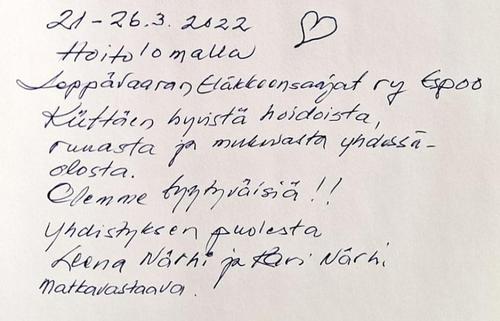 21-26.3. 2022
Hoitolomalla
Leppävaaran Eläkkeensaajat ry Espoo
Kiittäen hyvistä hoidoista,
ruuasta ja mukavasta yhdessä-
olosta.
Olemme tyytyväisiä!!
Yhdistyksen puolesta
Leena Närhi ja Pari Närhi
Matkavastaava.